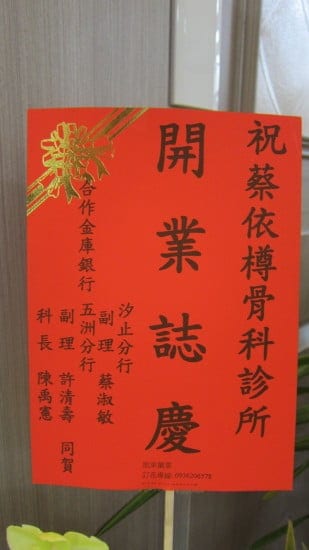 祝蔡依樽骨科診所
開業誌慶
汐止分行
副理 蔡淑敏
合作金庫銀行 五洲分行
副理 許清壽 同賀
科長 陳禹憲
凱來蘭業
訂花專線: 0936206578